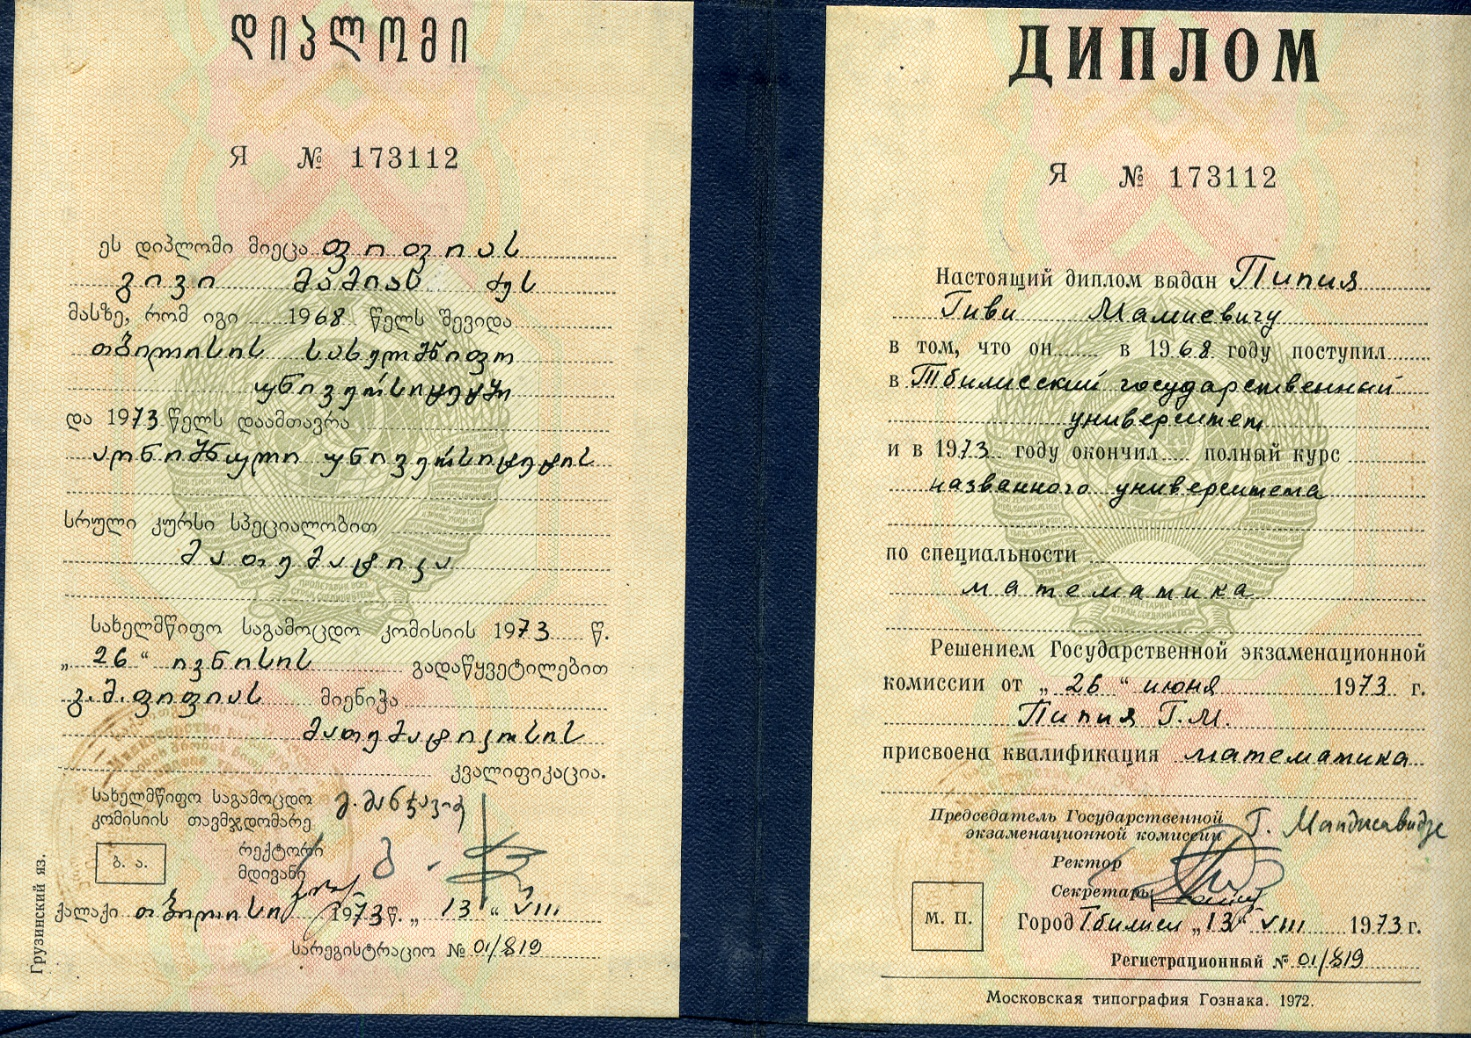 დიპლომი
Я № 173112
ეს დიპლომი მიეცა ფიფიას
გივი მამიას ძეს
მასზე, რომ იგი 1968 წელს შევიდა
თბილისის სახელმწიფო
უნივერსიტეტში
და 1973 წელს დაამთავრა
აღნიშნული უნივერსიტეტის
სრული კურსი სპეციალობით
მათემატიკა
სახელმწიფო საგამოცდო კომისიის 1973 წ.
„26“ ივნისის გადაწყვეტილებით
გ.მ.ფიფიას მიენიჭა
მათემატიკოსის
კვალიფიკაცია.
სახელმწიფო საგამოცდო
კომისიის თავმჯდომარე
რექტორი
მდივანი
ბ. ა.
ქალაქი თბილისი 1973 წ. „13“ VIII
სარეგისტრაციო № 01/819
Грузинский яз.
ДИПЛОМ
Я № 173112
Настоящий диплом выдан Пипия
Гиви Мамиевичу
в том, что он в 1968 году поступил
в Тбилисский государственный
университет
и в 1973 году окончил полный курс
названного университета
по специальности
математика
Решением Государственной экзаменационной
комиссии от „26“ июня 1973 г.
Пипия Г.М.
присвоена квалификация математика
Председатель Государственной
экзаменационной комиссии Г. Манджавидзе
Ректор
Секретарь
М. П.
Город Тбилиси „13“ VIII 1973 г.
Регистрационный № 01/819
Московская типография Гознака. 1972.